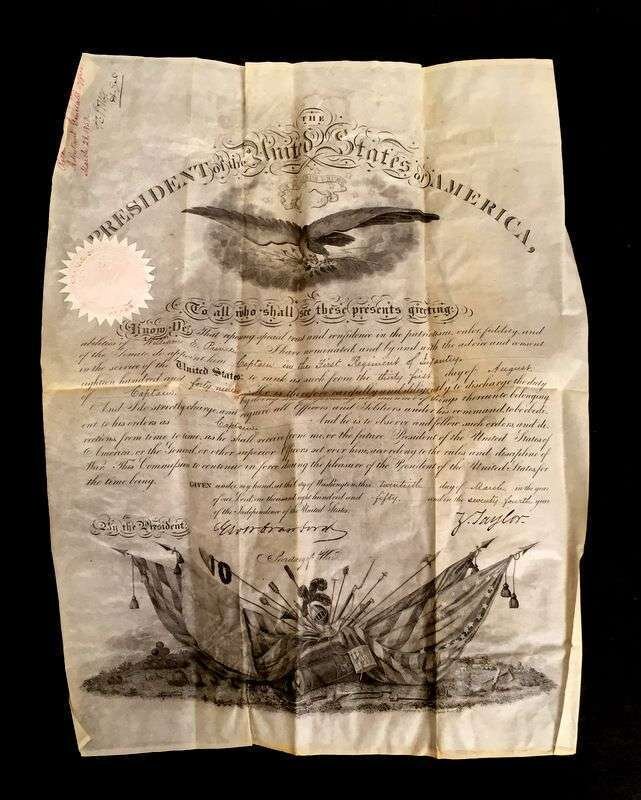 THE
PRESIDENT of the United States of AMERICA,
To all who shall see these presents greeting:
Know Ye, That reposing special trust and confidence in the patriotism, valor, fidelity, and
abilities of William E. I have nominated, and by and with the advice and consent
of the Senate do appoint him Captain in the First Regiment of Infantry
in the service of the United States: to rank as such from the thirty first day of August
eighteen hundred and forty nine. He is therefore carefully and diligently to discharge the duty
of Captain by doing and performing all manner of things thereunto belonging.
And I do strictly charge, and require all Officers and Soldiers under his command, to be obedi-
ent to his orders as Captain. And he is to observe and follow such orders, and di-
rections, from time to time, as he shall receive from me, or the future President of the United States of
America, or the General or other superior Officers set over him, according to the rules and discipline of
War. This Commission to continue in force during the pleasure of the President of the United States, for
the time being.
GIVEN under my hand, at the City of Washington, this twentieth day of March, in the year
of our Lord, one thousand eight hundred and fifty, and in the seventy fourth year
of the Independence of the United States.
By the President: Z. Taylor.
Geo W Crawford
Secretary of War
10